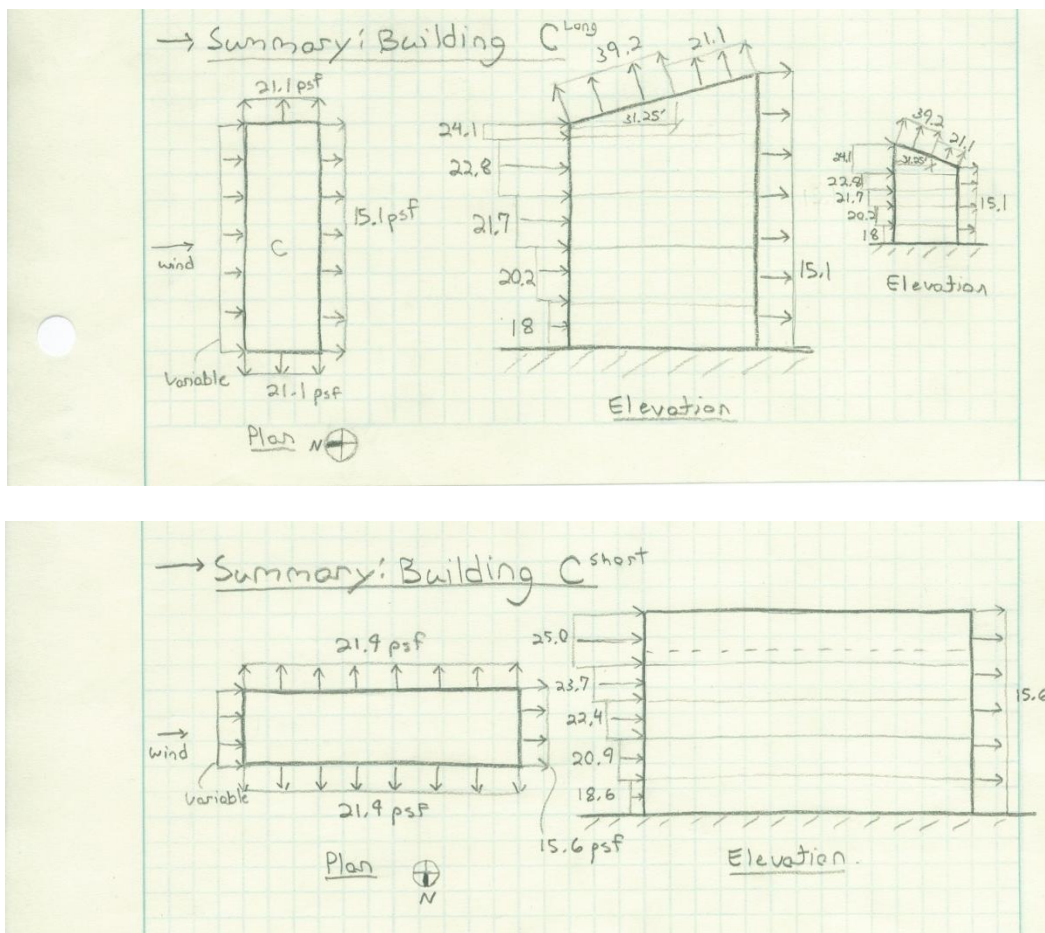 → Summary: Building C Long
21.1 psf
C
15.1 psf
wind
Variable
21.1 psf
Plan N
39.2
21.1
31.25'
24.1
22.8
21.7
20.2
18
15.1
Elevation
39.2
21.1
31.25'
24.1
22.8
21.7
20.2
18
15.1
Elevation
→ Summary: Building C short
21.9 psf
wind
variable
21.9 psf
15.6 psf
Plan
N
25.0
23.7
22.4
20.9
18.6
15.6
Elevation.